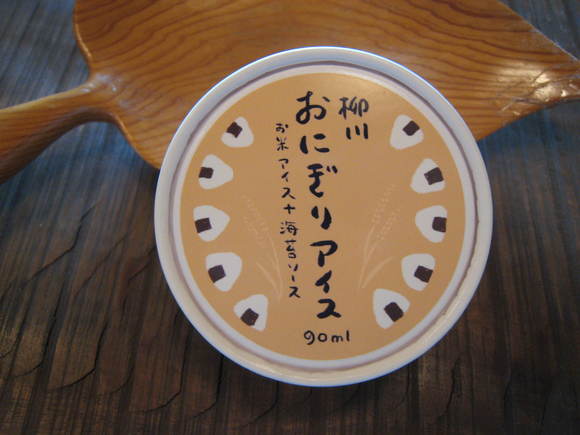 柳川
おにぎりアイス
お米アイス+海苔ソース
90ml